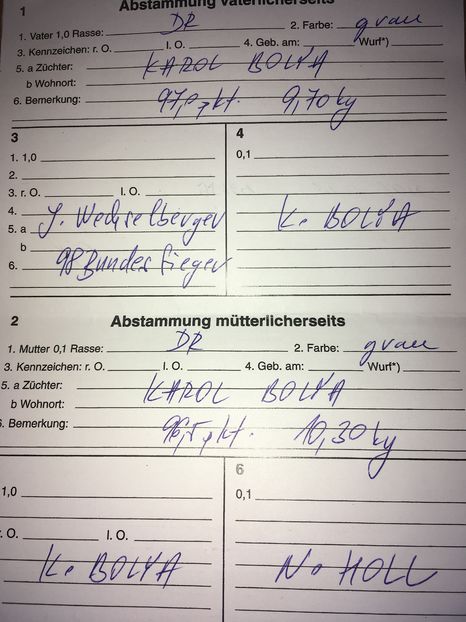 1 Abstammung väterlicherseits
1. Vater 1,0 Rasse: DR 2. Farbe: grau
3. Kennzeichen: r. O. l. O. 4. Geb. am: Wurf*)
5. a Züchter: KAROL BOLYA
b Wohnort:
6. Bemerkung: 97,0 pkt. 9,70 kg
3 4
1. 1,0 0,1
2.
3. r. O. l. O.
4.
5. a J. Wechselberger K. BOLYA
b
6. 98 Bundessieger
2 Abstammung mütterlicherseits
1. Mutter 0,1 Rasse: DR 2. Farbe: grau
3. Kennzeichen: r. O. l. O. 4. Geb. am: Wurf*)
5. a Züchter: KAROL BOLYA
b Wohnort:
6. Bemerkung: 96,5 pkt. 10,30 kg
6
1,0 0,1
r. O. l. O.
K. BOLYA N. HOLL